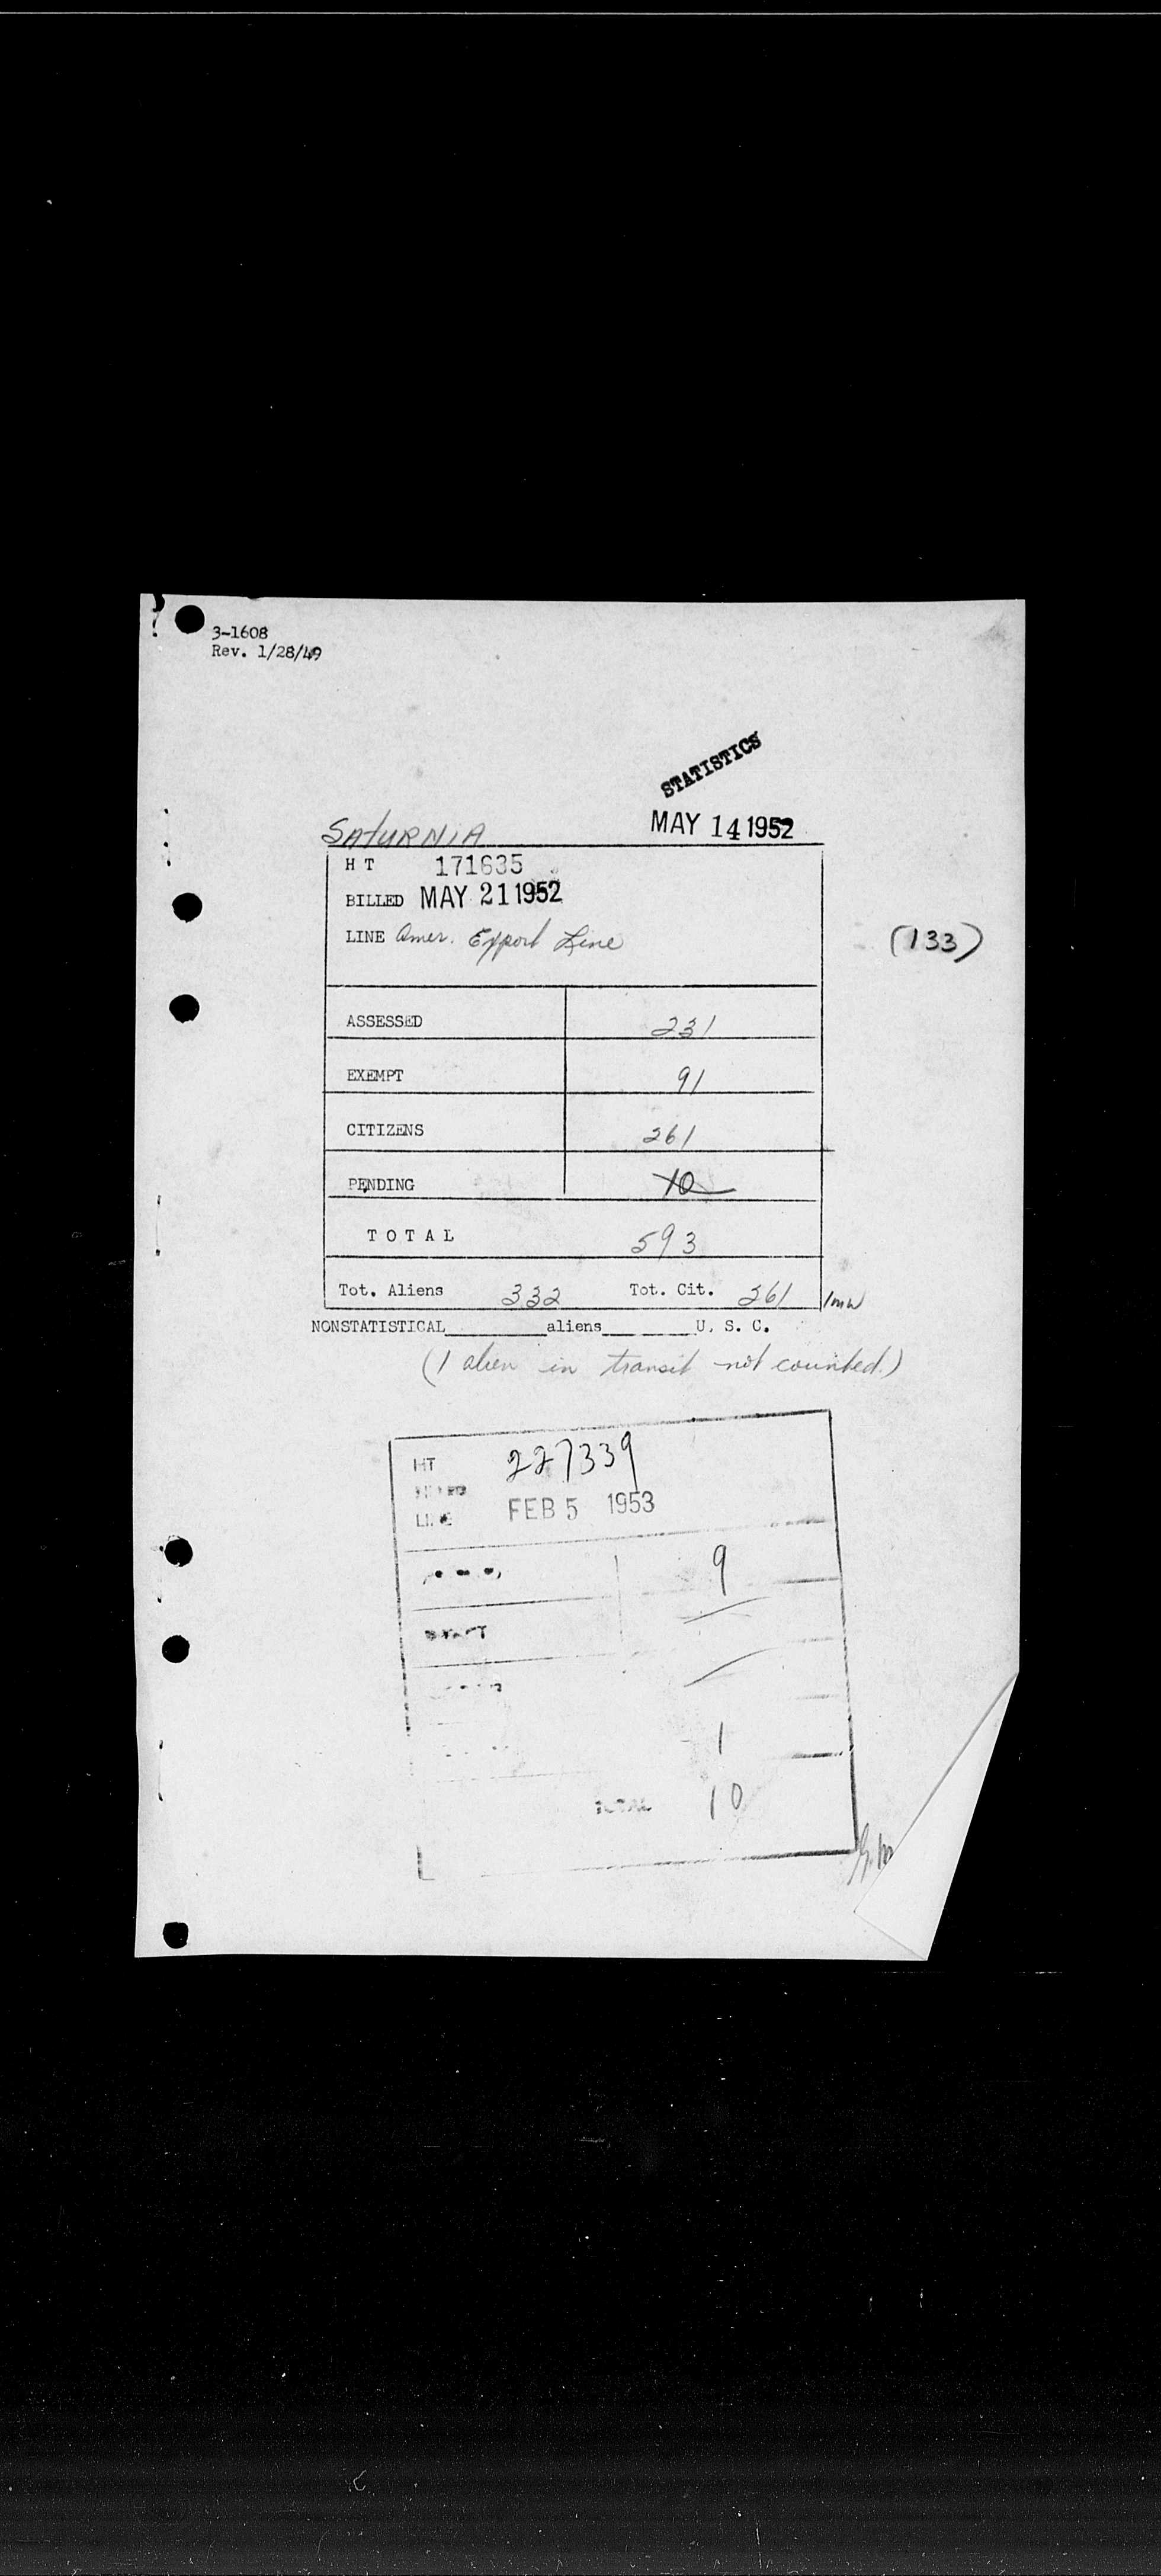 3-1608
Rev. 1/28/49
STATISTICS
MAY 14 1952
SATURNIA
H T 171635
BILLED MAY 21 1952
LINE Amer. Export Line
(133)
ASSESSED 231
EXEMPT 91
CITIZENS 261
PENDING 10
TOTAL 593
Tot. Aliens 332 Tot. Cit. 261
NONSTATISTICAL__________aliens_________U. S. C.
(1 alien in transit not counted.)
HT 227339
LINE FEB 5 1953
9
1
TOTAL 10